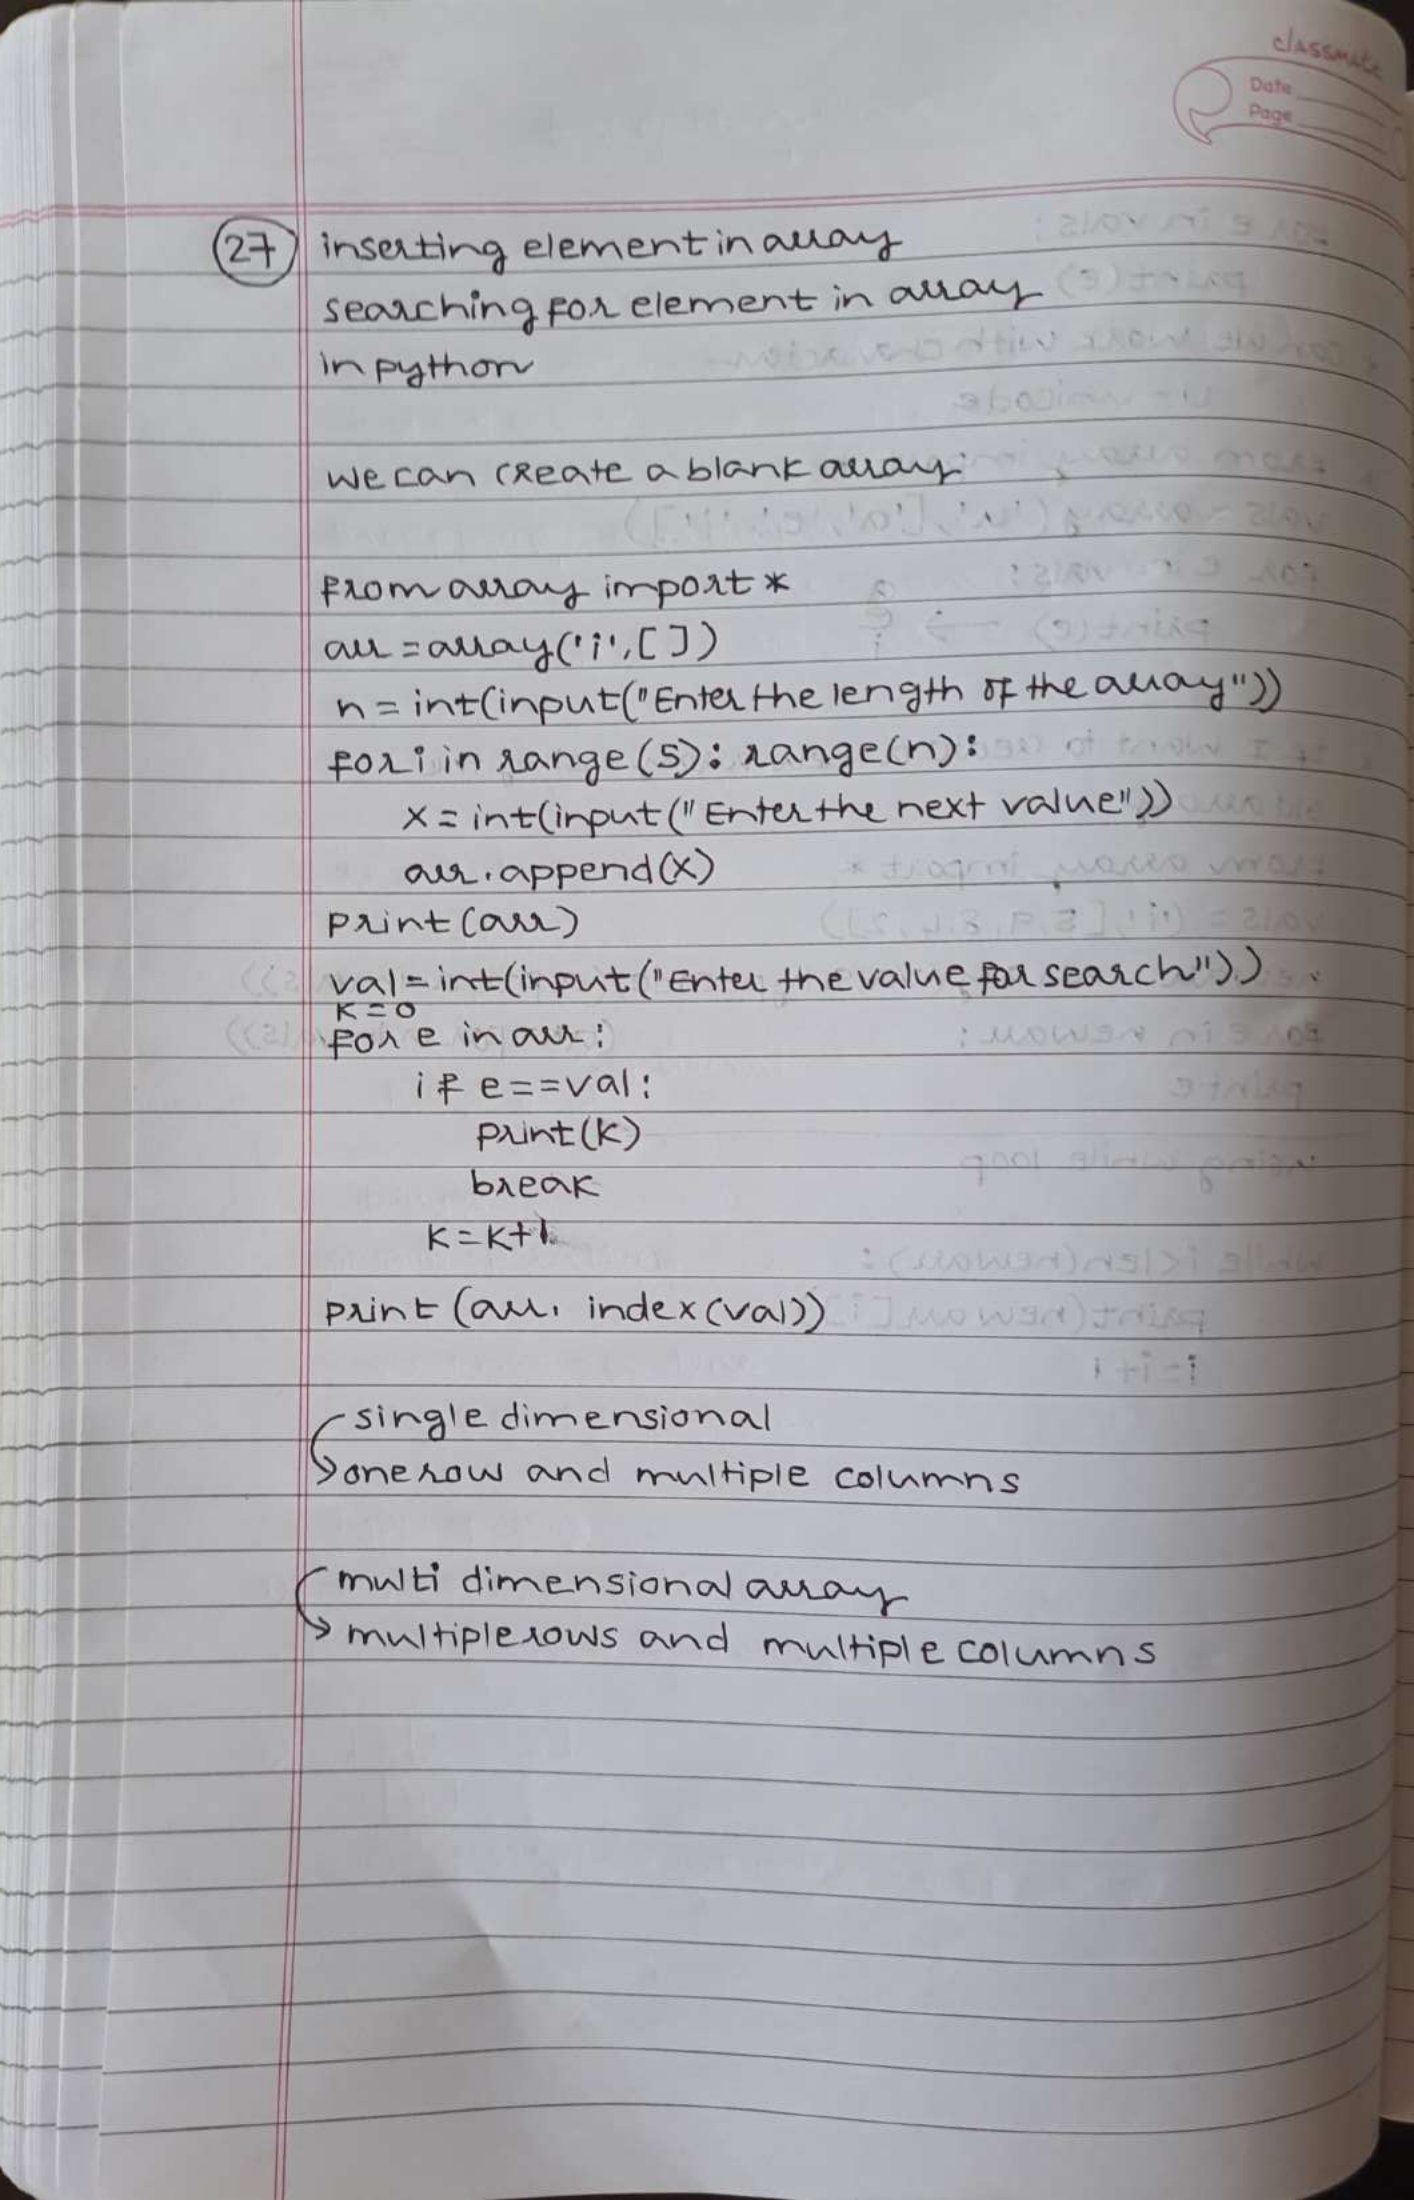 classmate
Date
Page
27 inserting element in array
searching for element in array
in python
we can create a blank array.
from array import *
arr = array('i',[])
n = int(input("Enter the length of the array"))
for i in range(5): range(n):
x = int(input("Enter the next value"))
arr.append(x)
print(arr)
val = int(input("Enter the value for search"))
k=0
for e in arr:
if e==val:
print(k)
break
k=k+1
print (arr. index(val))
single dimensional
one row and multiple columns
multi dimensional array
multiple rows and multiple columns